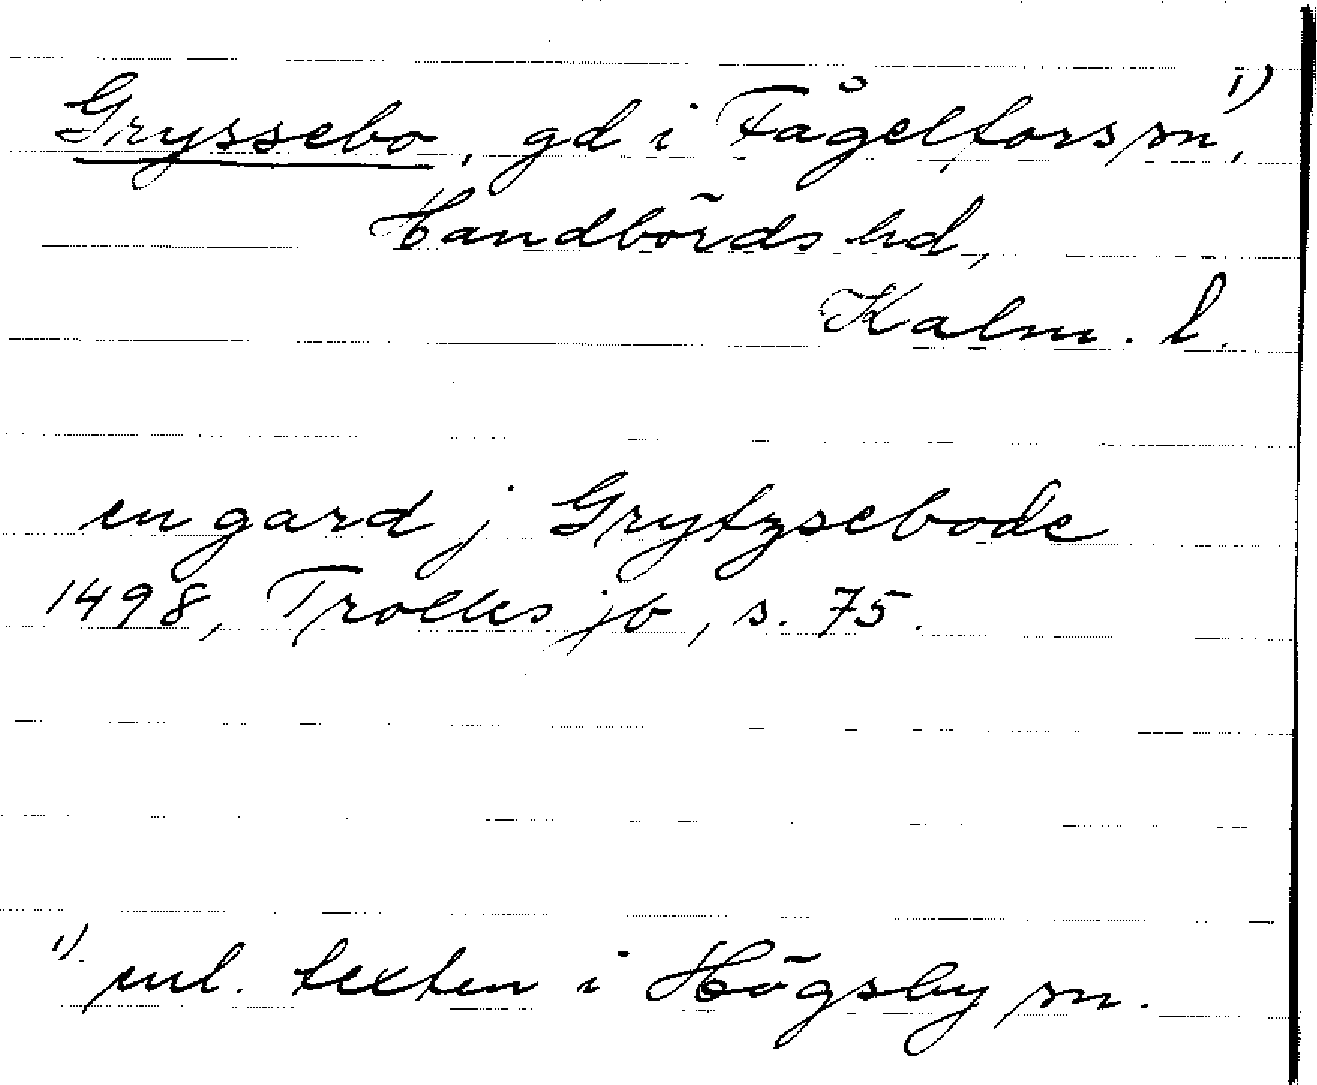 Gryssebo, gd i Fågelfors sn¹⁾,
Handbörds hd,
Kalm. l.
en gard j Grytzsebode
1498, Trolles jb, s. 75.
¹⁾ enl. texten i Högsby sn.